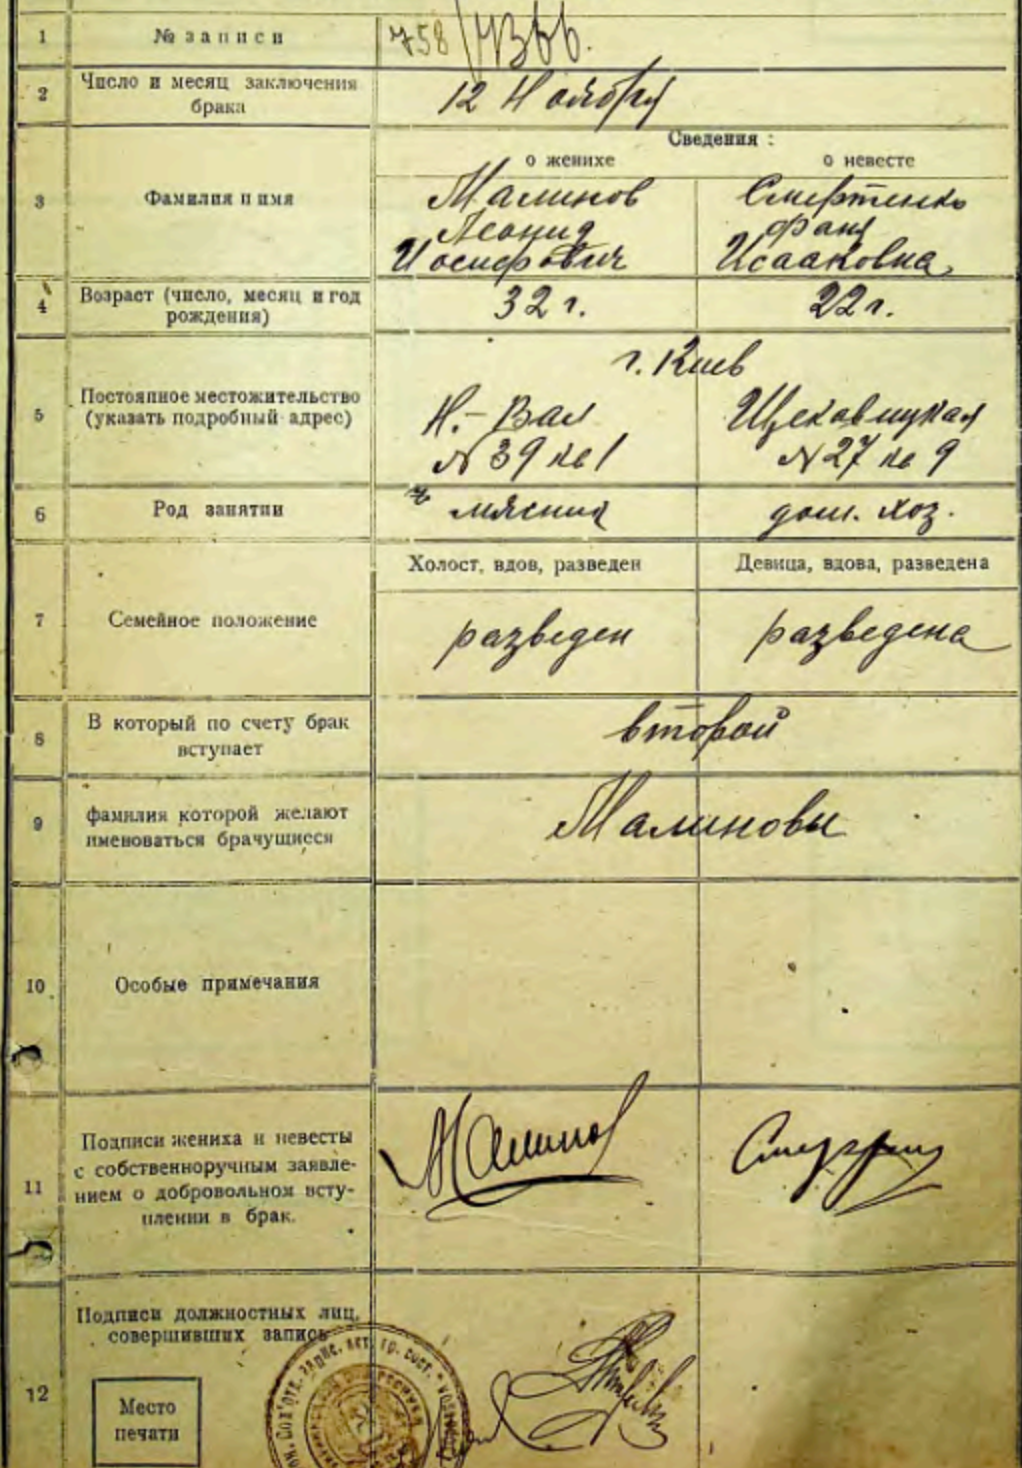 1 № записи 758/
2 Число и месяц заключения
брака
12 Ноября
Сведения :
о женихе о невесте
3 Фамилия и имя
Малинов Смертенко
Леонид Фаня
Иосифович Исааковна
4 Возраст (число, месяц и год
рождения)
32 г. 22 г.
г. Киев
5 Постоянное местожительство
(указать подробный адрес)
Н.-Вал Щековицкая
№ 39 кв 1 № 27 кв 9
6 Род занятии дом. хоз.
Холост, вдов, разведен Девица, вдова, разведена
7 Семейное положение
разведен разведена
8 В который по счету брак
вступает
второй
9 фамилия которой желают
именоваться брачущиеся
Малиновы
10 Особые примечания
11 Подписи жениха и невесты
с собственноручным заявле-
нием о добровольном всту-
плении в брак.
Малинов
12 Подписи должностных лиц,
совершивших запись
Место
печати